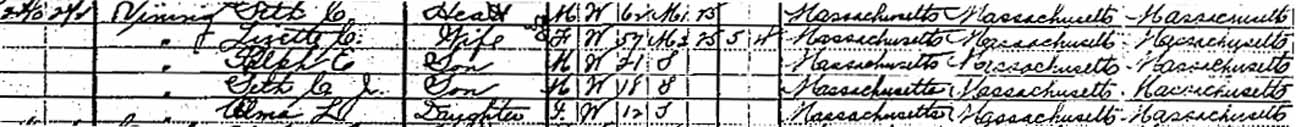 Vining Seth C. Head M W 62 M1 25 Massachusetts Massachusetts Massachusetts
" Lizette C. Wife F W 57 M2 25 5 4 Massachusetts Massachusetts Massachusetts
" Ralph E Son M W 21 S Massachusetts Massachusetts Massachusetts
" Seth C Jr. Son M W 18 S Massachusetts Massachusetts Massachusetts
" Alma L Daughter F W 12 S Massachusetts Massachusetts Massachusetts